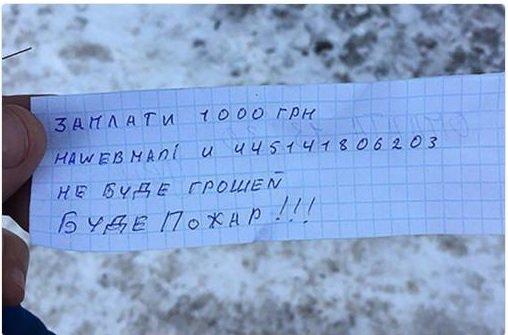 ЗАПЛАТИ 1000 ГРН
НАWEBМАПІ U 445141806203
НЕ БУДЕ ГРОШЕЙ
БУДЕ ПОЖАР!!!